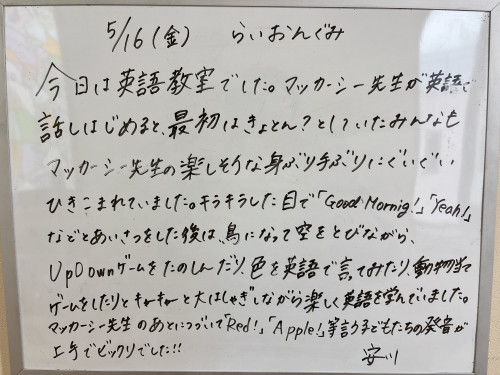 5/16(金) らいおんぐみ
今日は英語教室でした。マッカーシー先生が英語で
話しはじめると、最初はきょとん?としていたみんなも
マッカーシー先生の楽しそうな身ぶり手ぶりにぐいぐい
ひきこまれていました。キラキラした目で「Good Mornig!」「Yeah!」
などとあいさつをした後は、鳥になって空をとびながら、
UpDownゲームをたのしんだり、色を英語で言ってみたり、動物当て
ゲームをしたりとキャーキャーと大はしゃぎしながら楽しく英語を学んでいました。
マッカーシー先生のあとにつづいて「Red!」「Apple!」等言う子どもたちの発音が
上手でビックリでした!!
安川